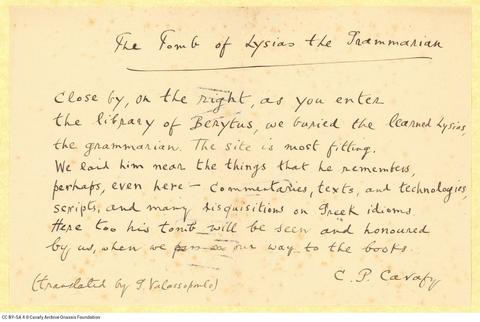 The Tomb of Lysias the Grammarian
Close by, on the right, as you enter
the library of Berytus, we buried the learned Lysias,
the grammarian. The site is most fitting.
We laid him near the things that he remembers,
perhaps, even here – commentaries, texts, and technologies,
scripts, and many disquisitions on Greek idioms.
Here too his tomb will be seen and honoured
by us, when we our way to the books.
C. P. Cavafy
(translated by G. Valassopoulo)
CC BY-SA 4.0 Cavafy Archive Onassis Foundation